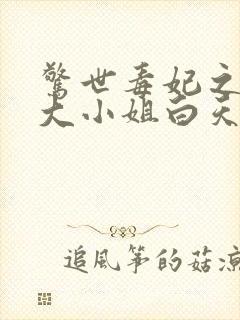 驚世毒妃之
大小姐白天
追風箏的菇涼